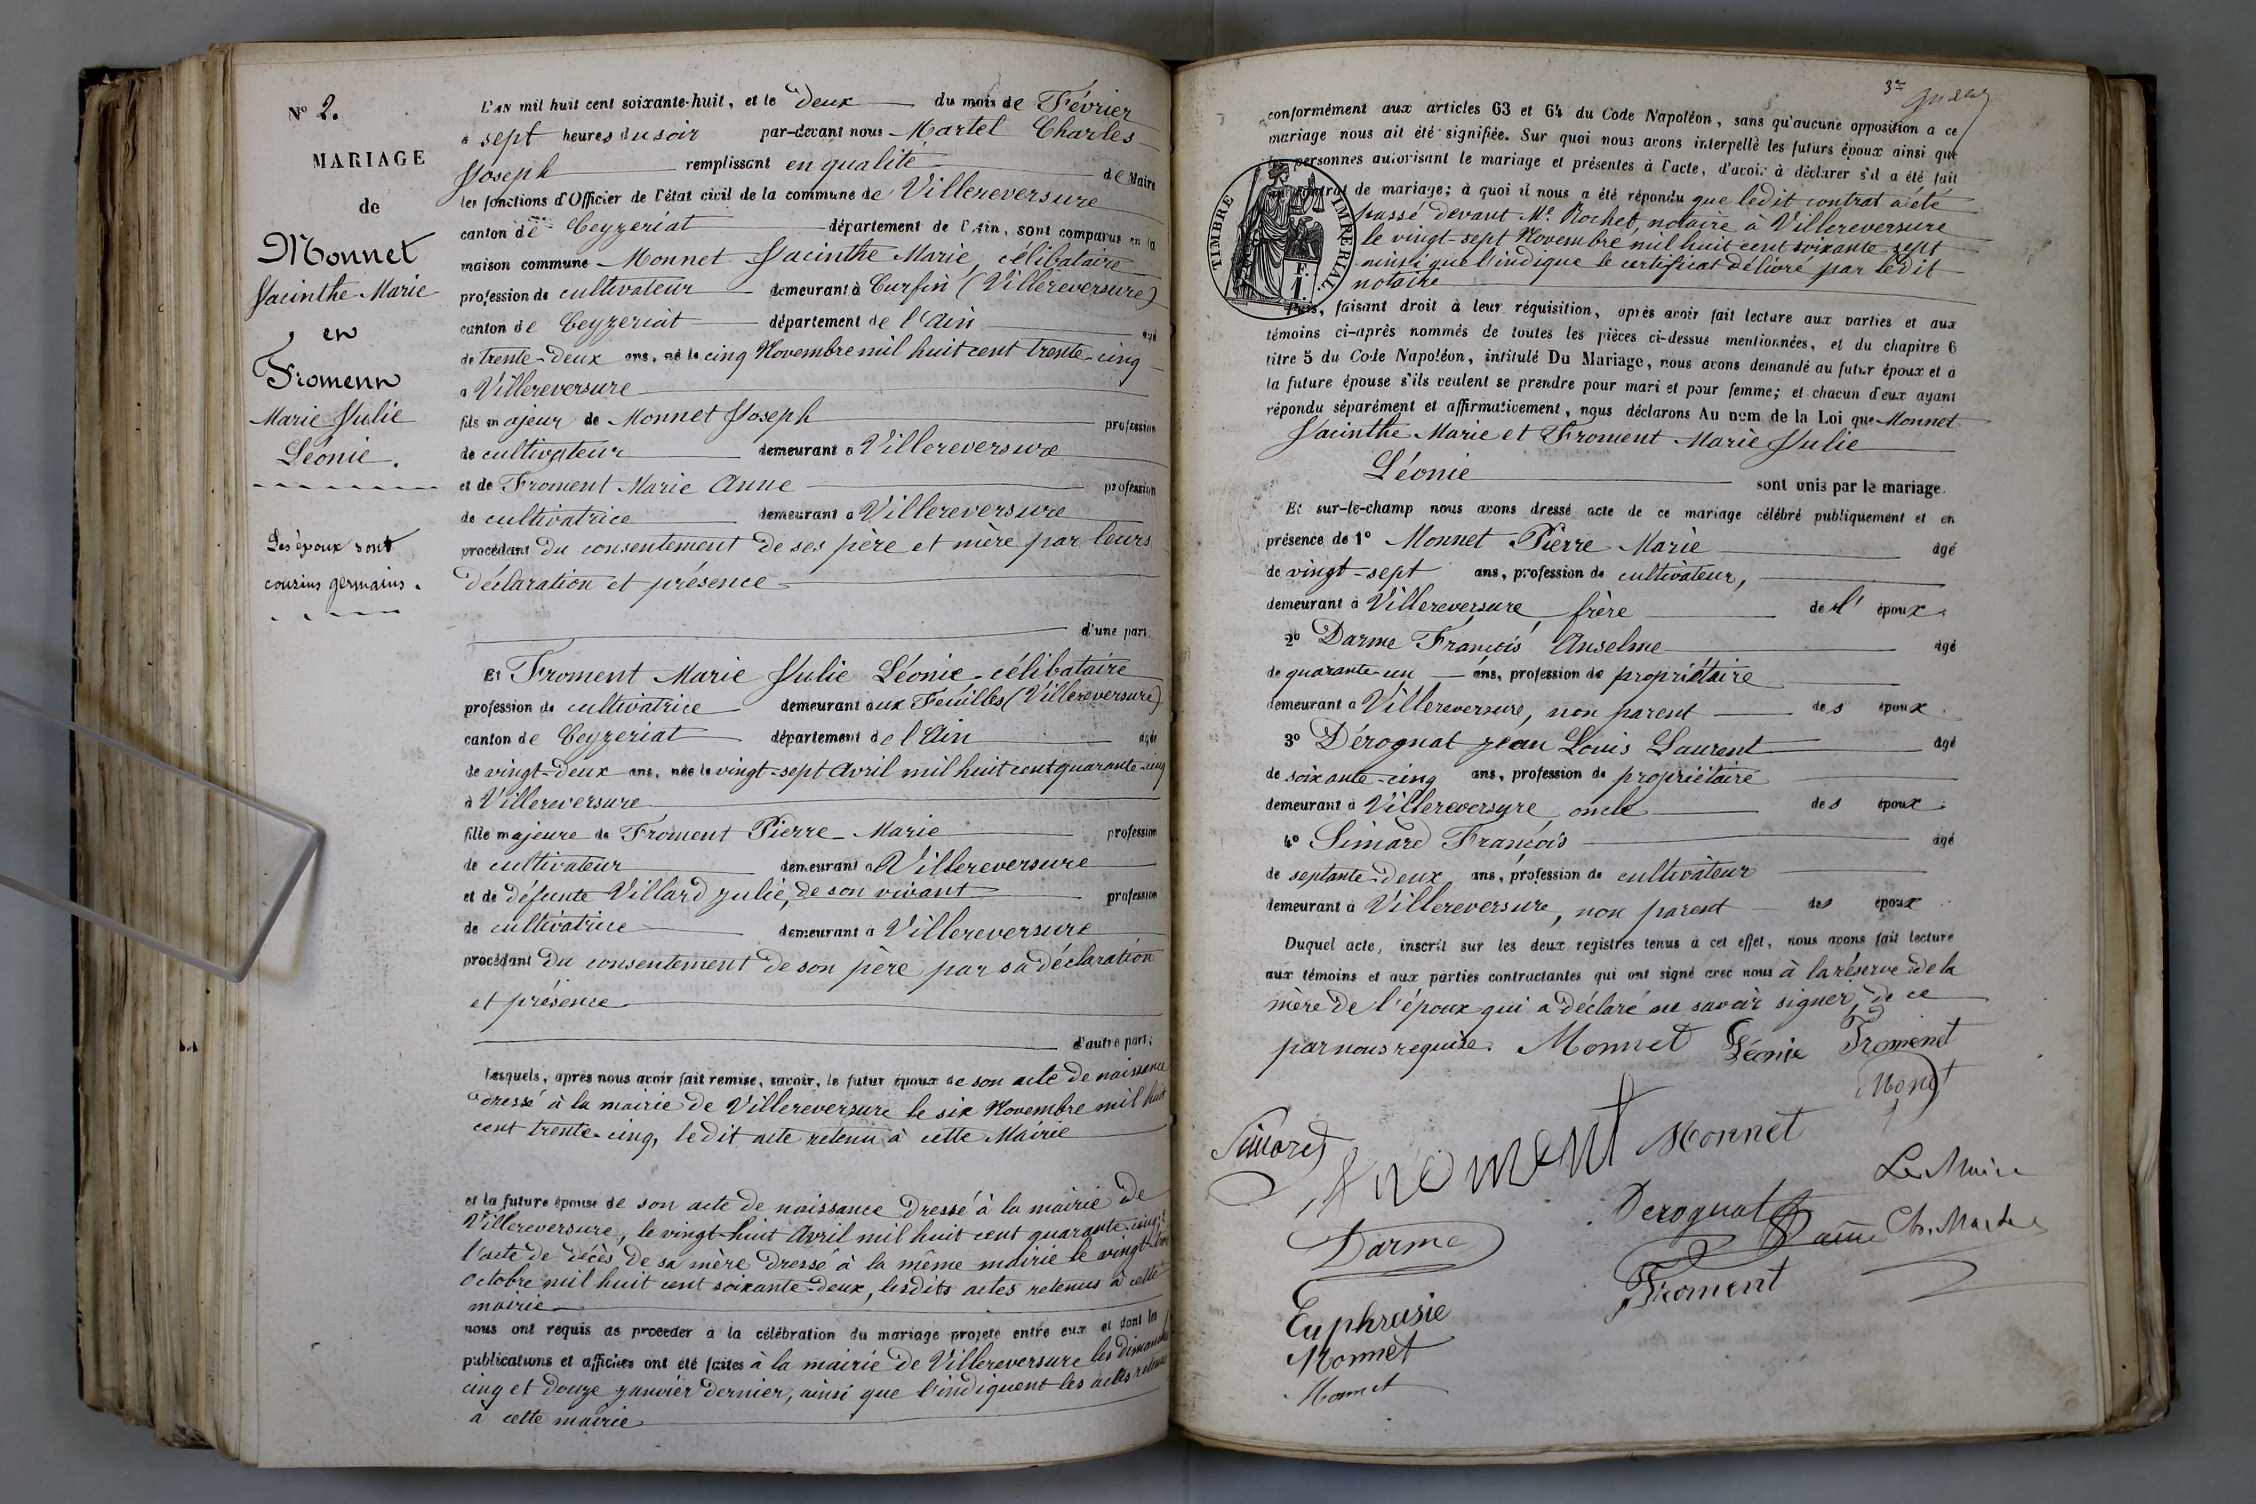 N° 2.
MARIAGE
de
Monnet
Jacinthe Marie
en
Froment
Marie Julie
Léonie.
Les époux sont
cousins germains.
L'AN mil huit cent soixante-huit, et le deux du mois de Février
a sept heures du soir par-devant nous Martel Charles
Joseph remplissant en qualité de Maire
les fonctions d'Officier de l'état civil de la commune de Villereversure
canton de Ceyzeriat département de l'Ain, sont comparus en la
maison commune Monnet Jacinthe Marie, célibataire
profession de cultivateur demeurant à Curfin (Villereversure)
canton de Ceyzeriat département de l'Ain agé
de trente-deux ans, né le cinq Novembre mil huit cent trente-cinq
a Villereversure
fils majeur de Monnet Joseph profession
de cultivateur demeurant a Villereversure
et de Froment Marie Anne profession
de cultivatrice demeurant a Villereversure
procédant du consentement de ses père et mère par leurs
déclaration et présence
d'une part.
Et Froment Marie Julie Léonie célibataire
profession de cultivatrice demeurant aux Feuilles (Villereversure)
canton de Ceyzeriat département de l'Ain agée
de vingt-deux ans, née le vingt-sept Avril mil huit cent quarante-cinq
à Villereversure
fille majeure de Froment Pierre-Marie profession
de cultivateur demeurant a Villereversure
et de défunte Villard Julie, de son vivant profession
de cultivatrice demeurant a Villereversure
procédant du consentement de son père par sa déclaration
et présence
d'autre part;
Lesquels, après nous avoir fait remise, savoir, le futur époux de son acte de naissance
dressé à la mairie de Villereversure le six Novembre mil huit
cent trente-cinq, ledit acte retenu à cette Mairie
et la future épouse de son acte de naissance dressé à la mairie de
Villereversure, le vingt-huit Avril mil huit cent quarante-cinq;
l'acte de décès de sa mère dressé à la même mairie le
Octobre mil huit cent soixante-deux, lesdits actes retenus à cette
mairie
nous ont requis de procéder a la célébration du mariage projeté entre eux et dont les
publications et affiches ont été faites à la mairie de Villereversure les dimanches
cinq et douze Janvier dernier, ainsi que l'indiquent les actes retenus
à cette mairie
conformément aux articles 63 et 64 du Code Napoléon, sans qu'aucune opposition a ce
mariage nous ait été signifiée. Sur quoi nous avons interpellé les futurs époux ainsi que
les personnes autorisant le mariage et présentes à l'acte, d'avoir à déclarer s'il a été fait
un contrat de mariage; à quoi il nous a été répondu que ledit contrat a été
passé devant Me Rochet, notaire à Villereversure
le vingt-sept Novembre mil huit cent soixante-sept
ainsi que l'indique le certificat délivré par ledit
notaire
TIMBRE IMPERIAL
Puis, faisant droit à leur réquisition, après avoir fait lecture aux parties et aux
témoins ci-après nommés de toutes les pièces ci-dessus mentionnées, et du chapitre 6
titre 5 du Code Napoléon, intitulé Du Mariage, nous avons demandé au futur époux et à
la future épouse s'ils veulent se prendre pour mari et pour femme; et chacun d'eux ayant
répondu séparément et affirmativement, nous déclarons Au nom de la Loi que Monnet
Jacinthe Marie et Froment Marie Julie
Léonie sont unis par le mariage.
Et sur-le-champ nous avons dressé acte de ce mariage célébré publiquement et en
présence de 1° Monnet Pierre Marie agé
de vingt-sept ans, profession de cultivateur,
demeurant à Villereversure, frère de l' époux
2° Darme François Anselme agé
de quarante-un ans, profession de propriétaire
demeurant a Villereversure, non parent des époux
3° Dérognat Jean Louis Laurent agé
de soixante-cinq ans, profession de propriétaire
demeurant à Villereversure, oncle des époux
4° Simard François agé
de septante-deux ans, profession de cultivateur
demeurant à Villereversure, non parent des époux
Duquel acte, inscrit sur les deux registres tenus à cet effet, nous avons fait lecture
aux témoins et aux parties contractantes qui ont signé avec nous à la réserve de la
mère de l'époux qui a déclaré ne savoir signer, de ce
par nous requise. Monnet Léonie Froment
Simard Froment Monnet
Le Maire
Derognat
Darme Ch. Martel
Froment
Euphrasie
Monnet
Monnet